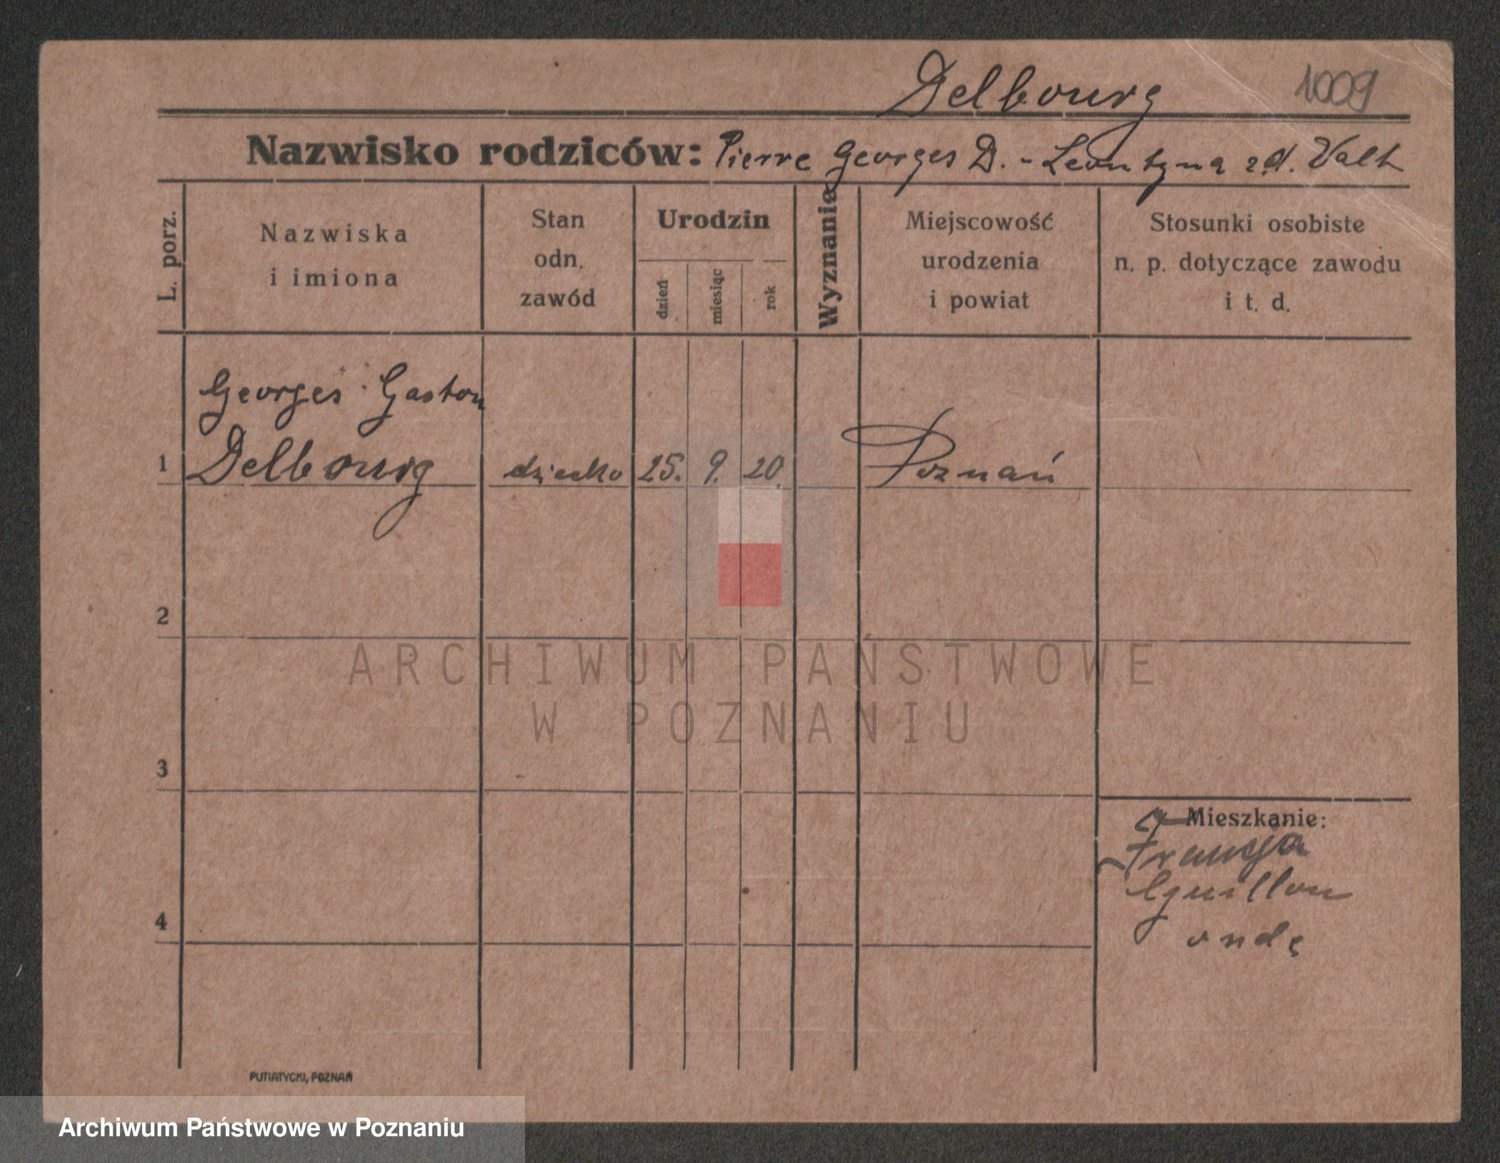 Delbourg 1009
Nazwisko rodziców: Pierre Georges D. - Leontyna z d. Valk
L. porz.
Nazwiska
i imiona
Stan
odn.
zawód
Urodzin
dzień
miesiąc
rok
Wyznanie
Miejscowość
urodzenia
i powiat
Stosunki osobiste
n. p. dotyczące zawodu
i t. d.
Georges Gaston
1 Delbourg dziecko 25. 9. 20. Poznań
2
ARCHIWUM PAŃSTWOWE
W POZNANIU
3
Mieszkanie:
Francja
Guillon
4
PUTIATYCKI, POZNAŃ
Archiwum Państwowe w Poznaniu